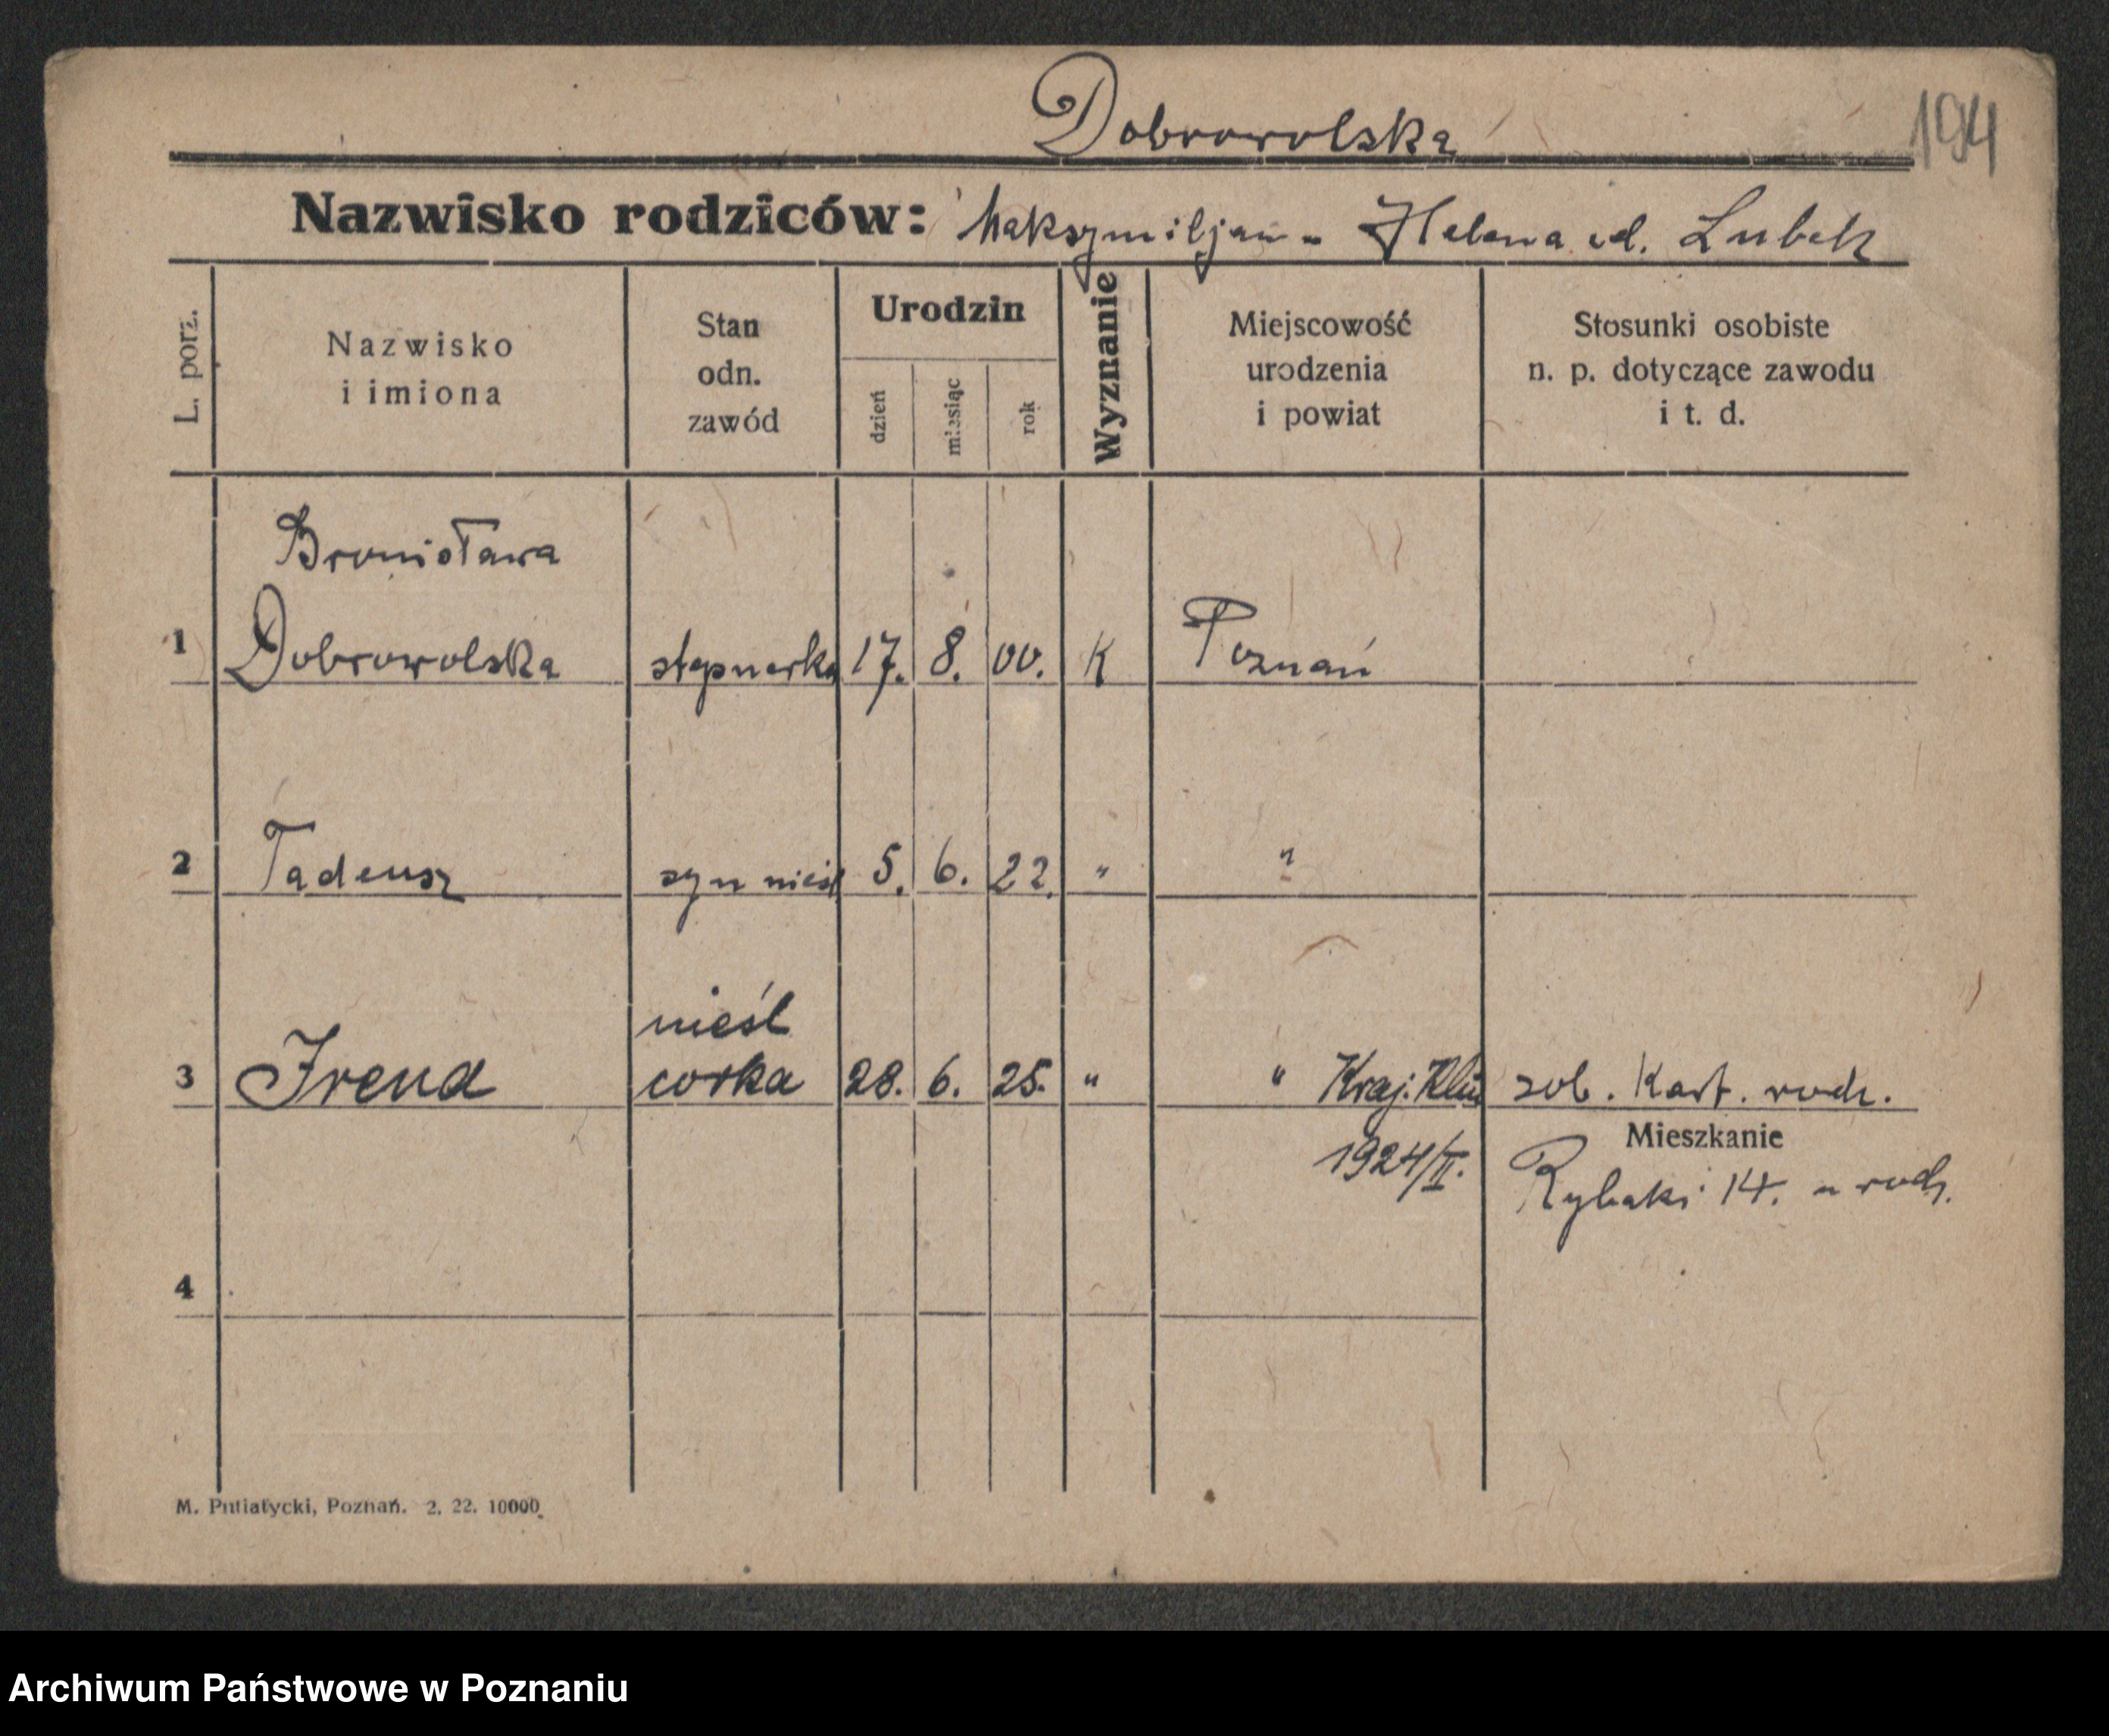 Dobrowolska
194
Nazwisko rodziców: Maksymiljan - Helena zd. Lubek
L. porz.
Nazwisko
i imiona
Stan
odn.
zawód
Urodzin
dzień
miesiąc
rok
Wyznanie
Miejscowość
urodzenia
i powiat
Stosunki osobiste
n. p. dotyczące zawodu
i t. d.
Bronisława
1 Dobrowolska 17. 8. 00. K Poznań
2 Tadeusz syn nieśl 5. 6. 22. " "
nieśl
3 Irena corka 28. 6. 25. " " Kraj. Klin zob. Kart. rodz.
Mieszkanie
1924/II. Rybaki 14. u rodz.
4
M. Putiatycki, Poznań. 2. 22. 10000.
Archiwum Państwowe w Poznaniu